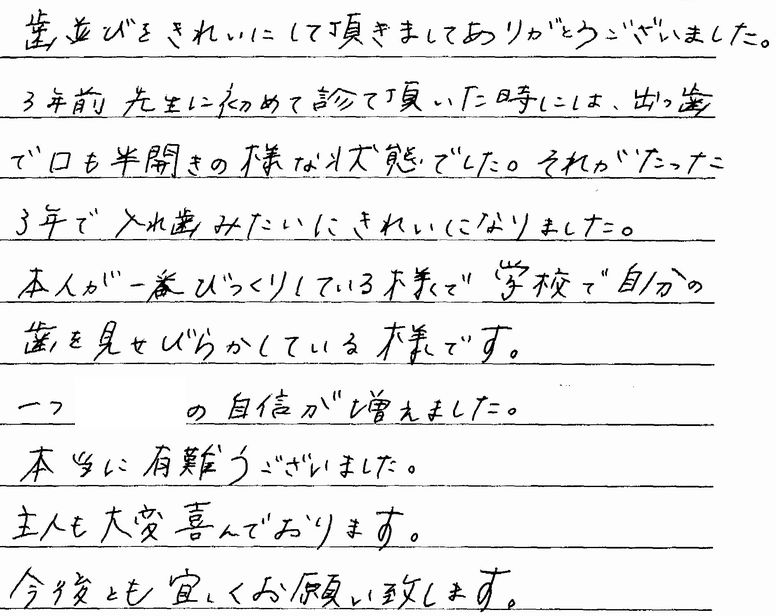 歯並びをきれいにして頂きましてありがとうございました。
3年前 先生に初めて診て頂いた時には、出っ歯
で口も半開きの様な状態でした。それがたった
3年で入れ歯みたいにきれいになりました。
本人が一番びっくりしている様で学校で自分の
歯を見せびらかしている様です。
一つ の自信が増えました。
本当に有難うございました。
主人も大変喜んでおります。
今後とも宜しくお願い致します。